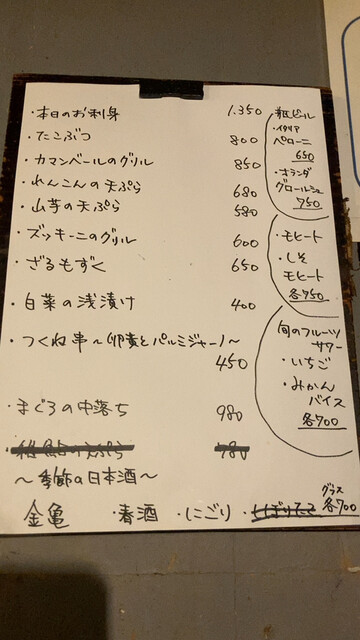 ・本日のお刺身 1.350
・たこぶつ 800
・カマンベールのグリル 850
・れんこんの天ぷら 680
・山芋の天ぷら 580
・ズッキーニのグリル 600
・ざるもずく 650
・白菜の浅漬け 400
・つくね串〜卵黄とパルミジャーノ〜
450
・まぐろの中落ち 980
・稚鮎の天ぷら 780
〜季節の日本酒〜
金亀 ・春酒 ・にごり ・しぼりたて
グラス
各700
瓶ビール
・イタリア
ペローニ
650
・オランダ
グロールシュ
750
・モヒート
・しそ
モヒート
各750
旬のフルーツ
サワー
・いちご
・みかん
バイス
各700